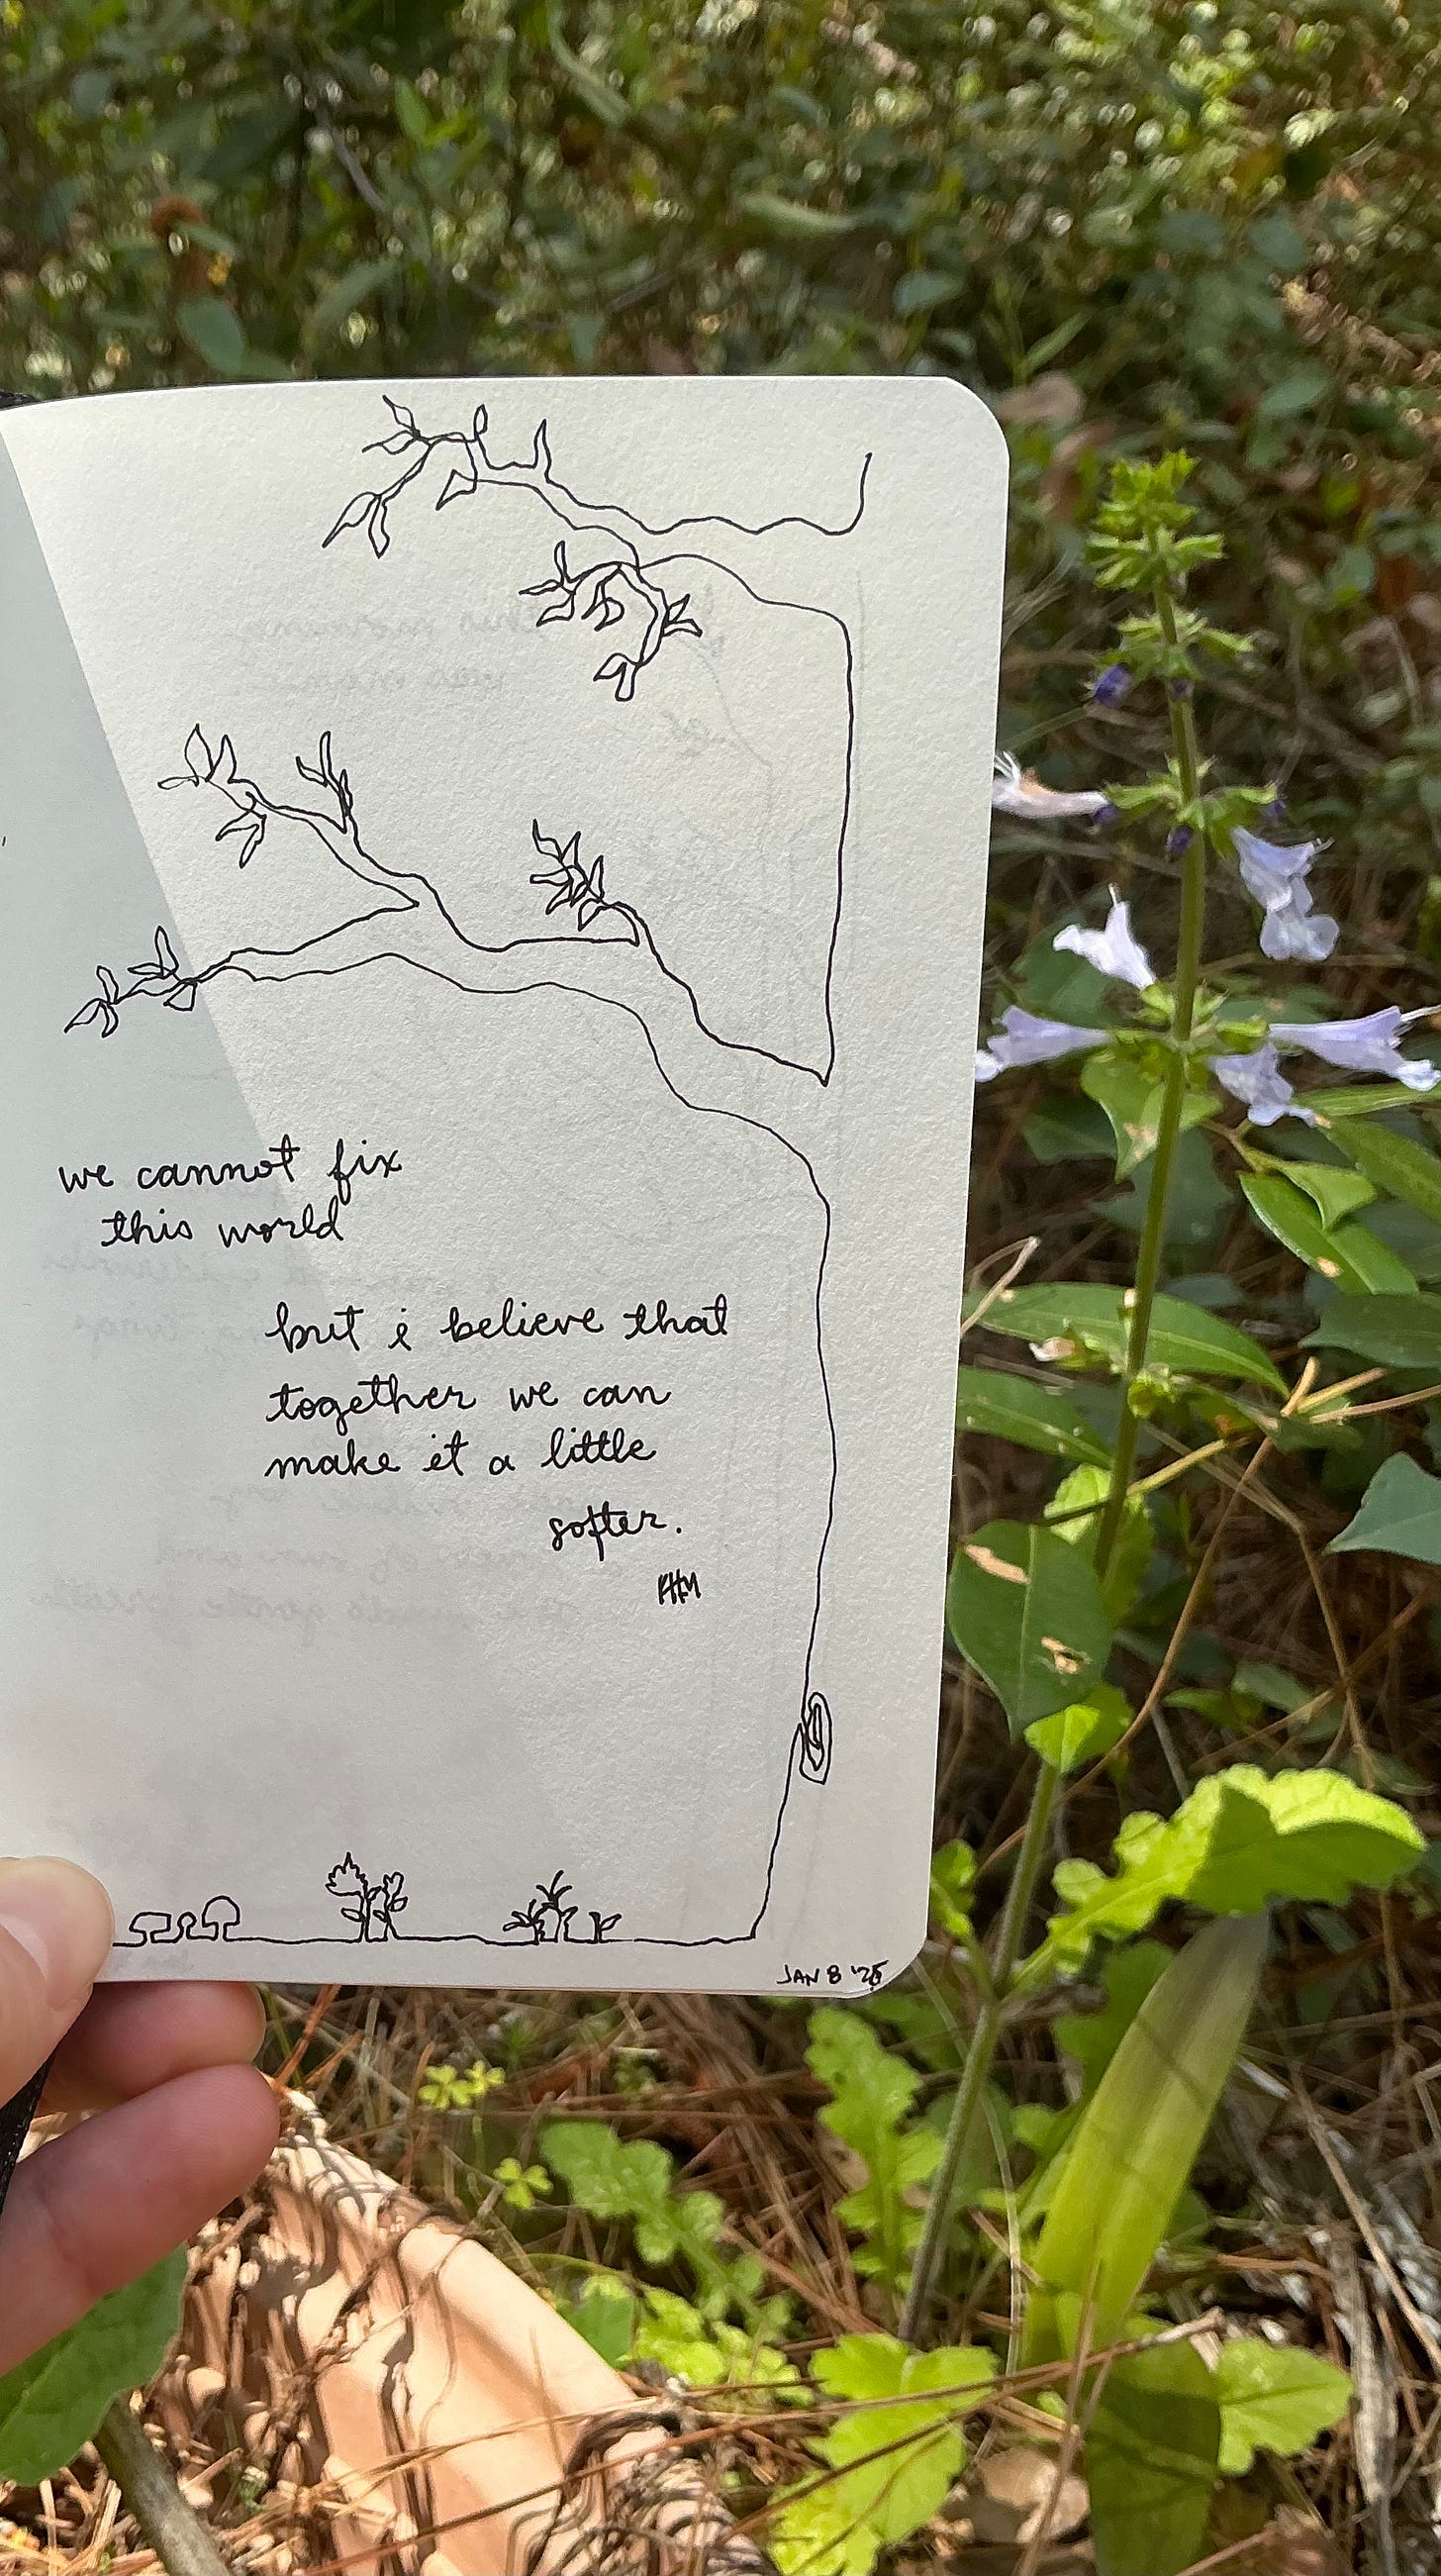 we cannot fix
this world
but i believe that
together we can
make it a little
softer.
JAN 8 '25